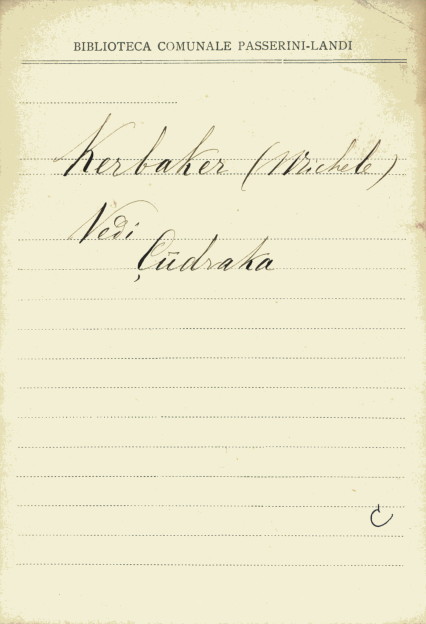 BIBLIOTECA COMUNALE PASSERINI-LANDI
Kerbaker (Michele)
Vedi
Çūdraka
C